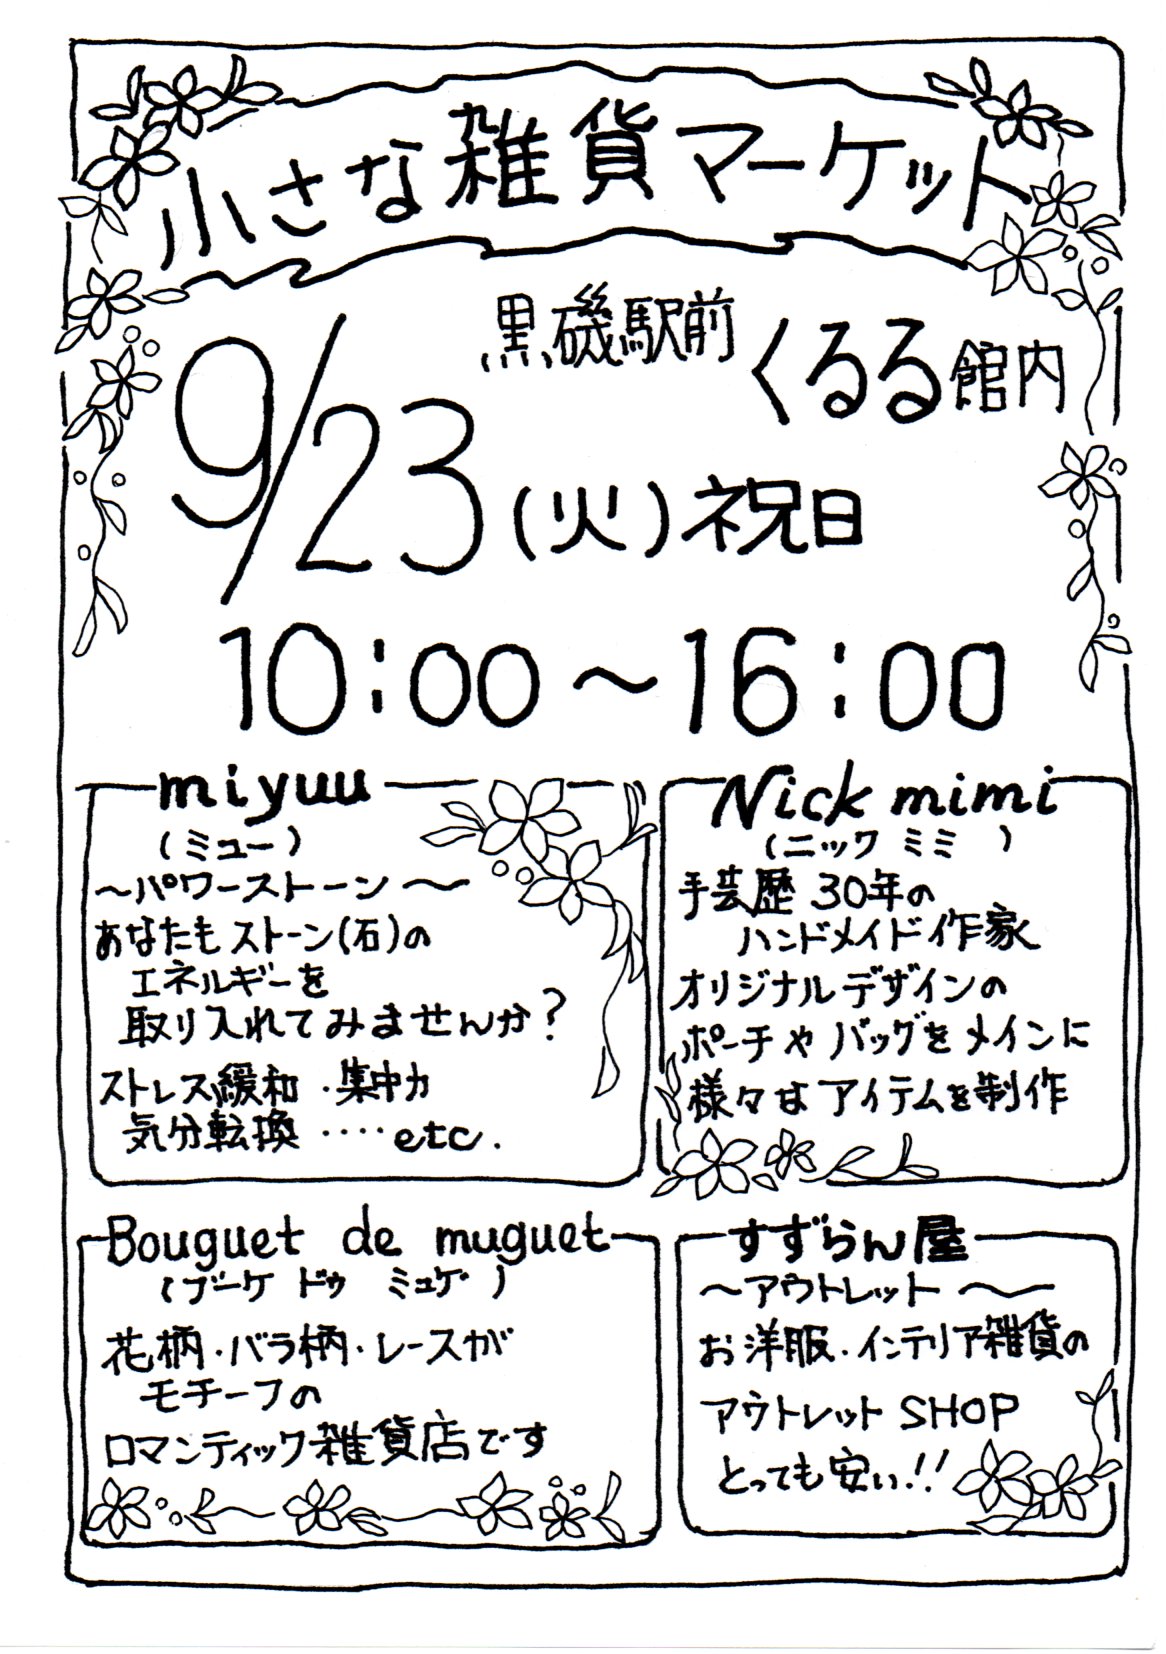 小さな雑貨マーケット
黒磯駅前
くるる館内
9/23(火)祝日
10:00〜16:00
miyuu
(ミュー)
〜パワーストーン〜
あなたもストーン(石)の
エネルギーを
取り入れてみませんか?
ストレス緩和・集中力
気分転換‥‥etc.
Nick mimi
(ニック ミミ)
手芸歴 30年の
ハンドメイド作家
オリジナルデザインの
ポーチや バッグをメインに
様々なアイテムを制作
Bouguet de muguet
(ブーケ ドゥ ミュゲ)
花柄・バラ柄・レースが
モチーフの
ロマンティック雑貨店です
すずらん屋
〜アウトレット〜
お洋服・インテリア雑貨の
アウトレットSHOP
とっても安い!!